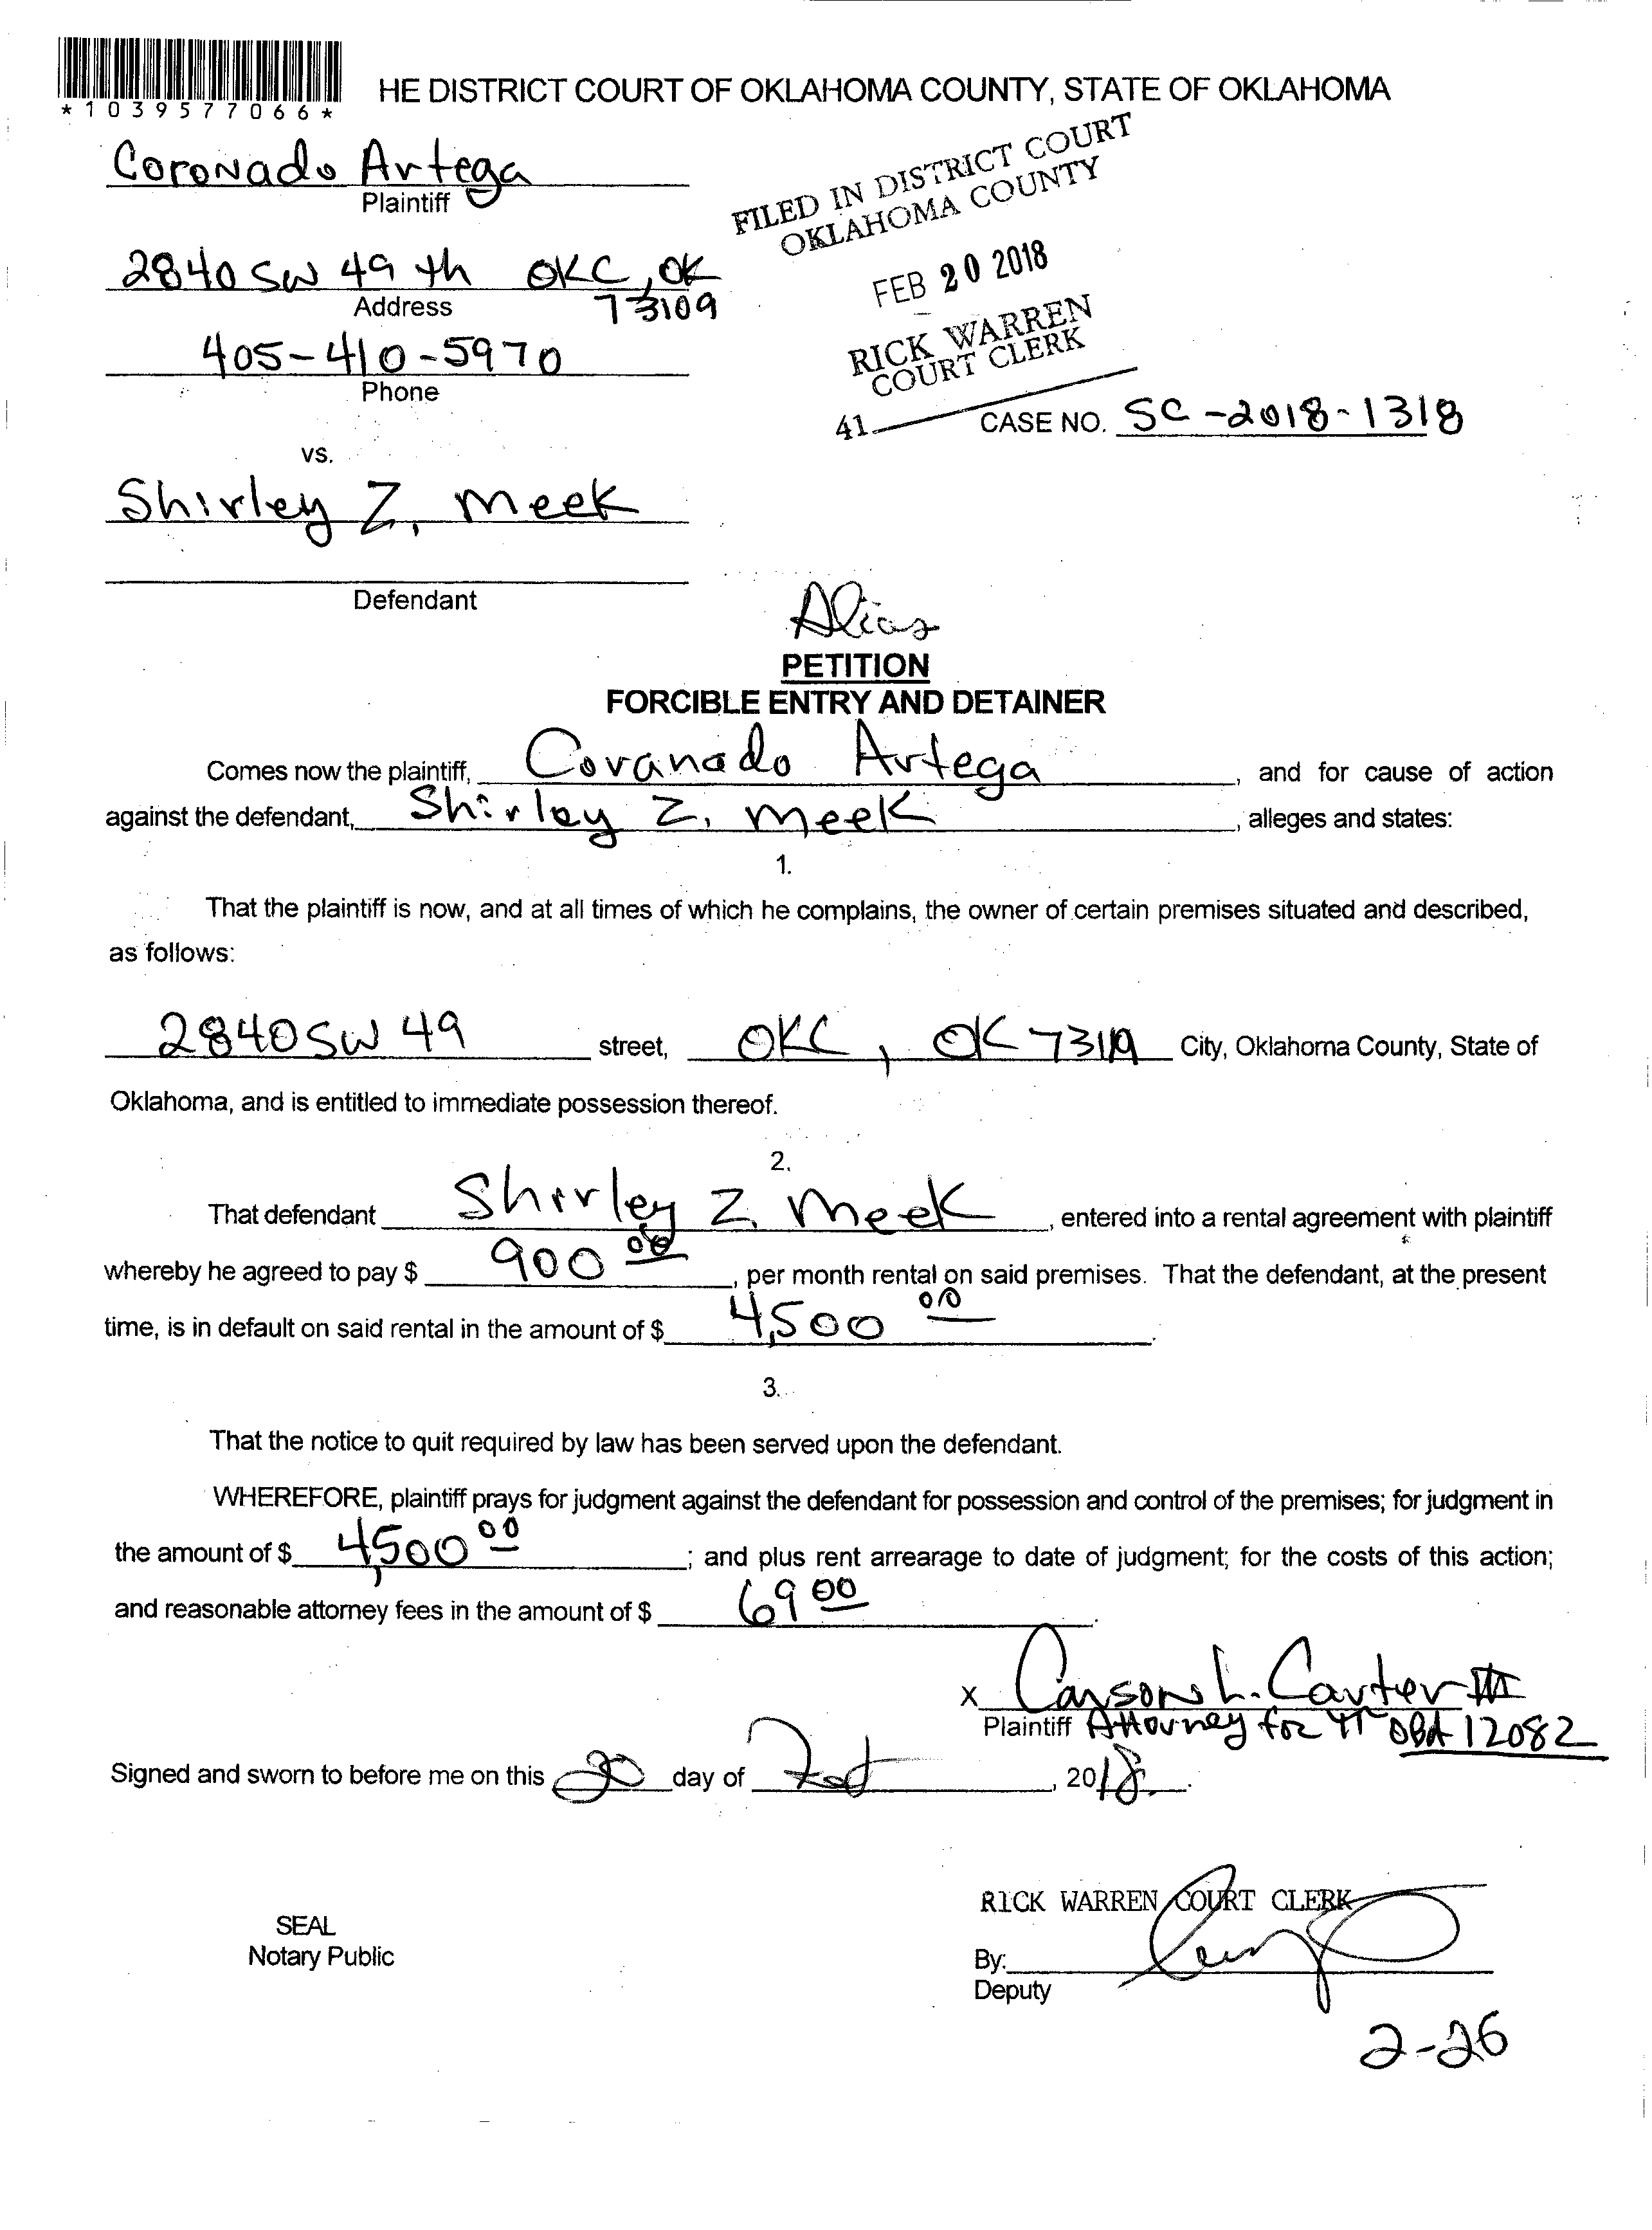 *1039577066*
HE DISTRICT COURT OF OKLAHOMA COUNTY, STATE OF OKLAHOMA
Coronado Artega
Plaintiff
FILED IN DISTRICT COURT
OKLAHOMA COUNTY
2840 SW 49 th OKC, OK
Address 73109
FEB 20 2018
405-410-5970
Phone
RICK WARREN
COURT CLERK
41
CASE NO. SC-2018-1318
vs.
Shirley Z. Meek
Defendant
Alias
PETITION
FORCIBLE ENTRY AND DETAINER
Comes now the plaintiff, Coranado Artega, and for cause of action
against the defendant, Shirley Z. Meek, alleges and states:
1.
That the plaintiff is now, and at all times of which he complains, the owner of certain premises situated and described,
as follows:
2840 SW 49 street, OKC, OK City, Oklahoma County, State of
Oklahoma, and is entitled to immediate possession thereof.
2.
That defendant Shirley Z. Meek, entered into a rental agreement with plaintiff
whereby he agreed to pay $ 900 00, per month rental on said premises. That the defendant, at the present
time, is in default on said rental in the amount of $ 4,500 00.
3.
That the notice to quit required by law has been served upon the defendant.
WHEREFORE, plaintiff prays for judgment against the defendant for possession and control of the premises; for judgment in
the amount of $ 4,500 00; and plus rent arrearage to date of judgment; for the costs of this action;
and reasonable attorney fees in the amount of $ 69 00.
X Carson L. Carter III
Plaintiff Attorney for OBA 12082
Signed and sworn to before me on this 20 day of Feb, 2018.
RICK WARREN COURT CLERK
SEAL
Notary Public
By:
Deputy
2-26